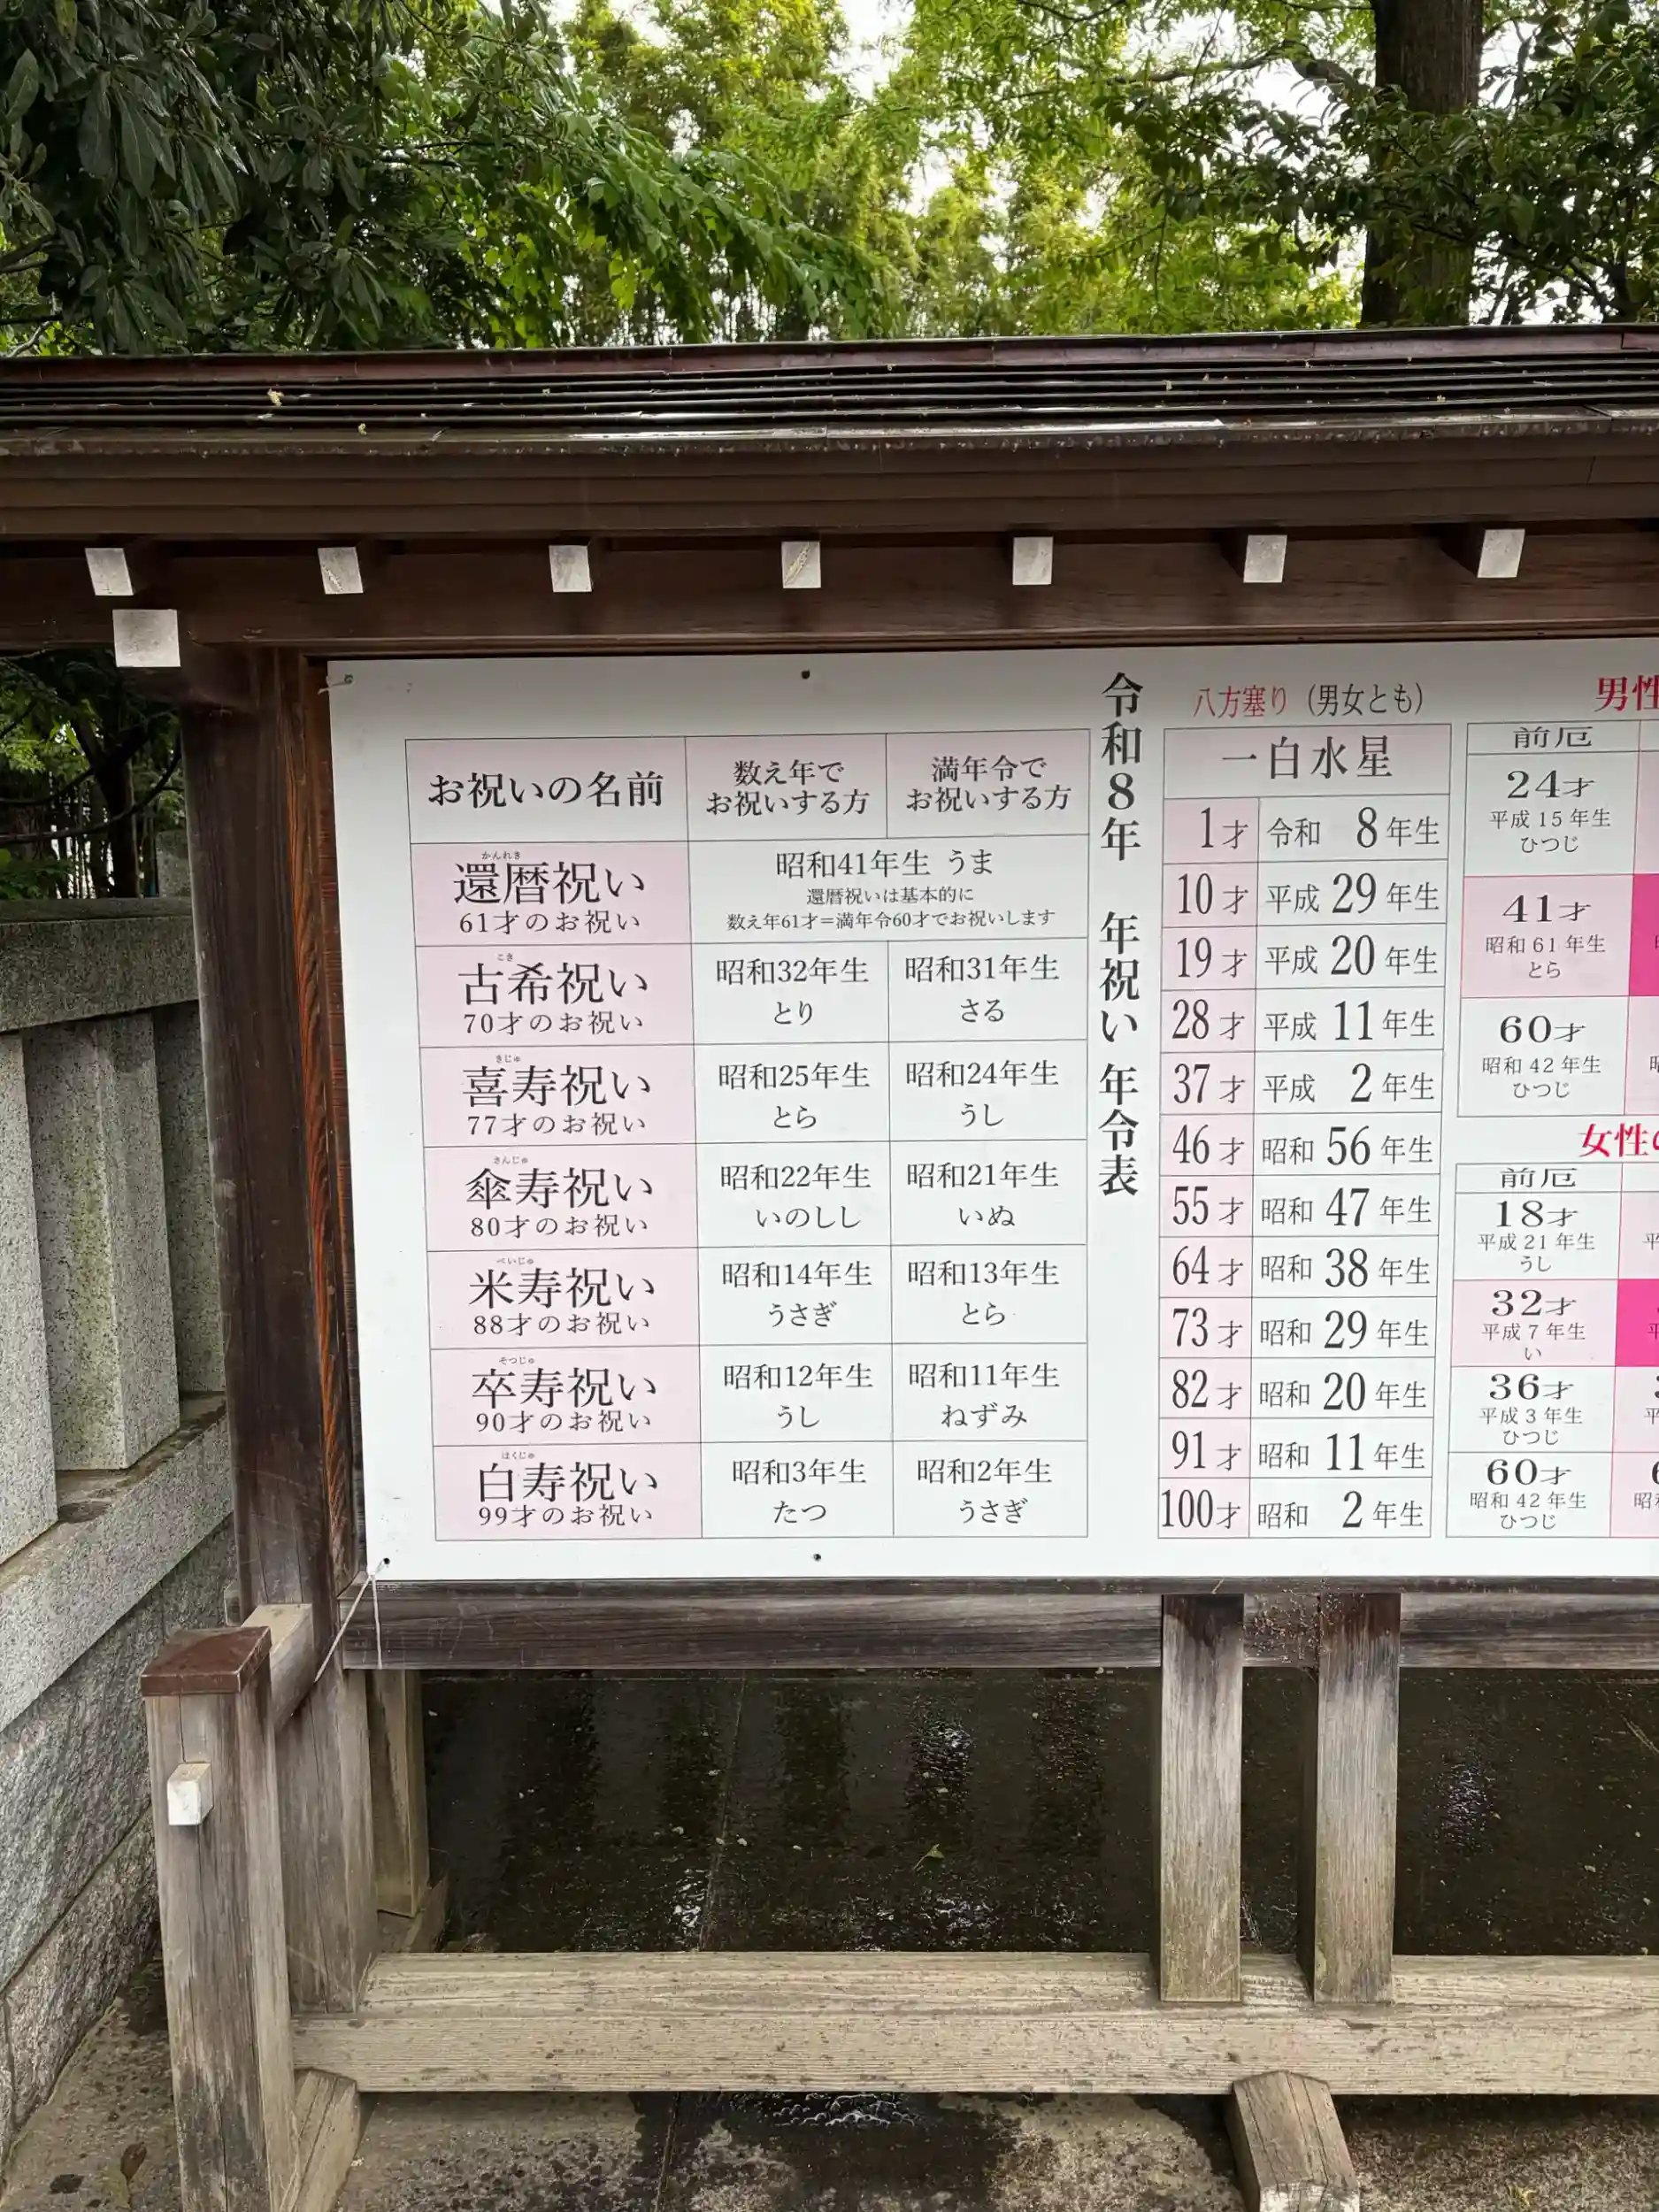 お祝いの名前
数え年で
お祝いする方
満年令で
お祝いする方
かんれき
還暦祝い
61才のお祝い
昭和41年生 うま
還暦祝いは基本的に
数え年61才=満年令60才でお祝いします
こき
古希祝い
70才のお祝い
昭和32年生
とり
昭和31年生
さる
きじゅ
喜寿祝い
77才のお祝い
昭和25年生
とら
昭和24年生
うし
さんじゅ
傘寿祝い
80才のお祝い
昭和22年生
いのしし
昭和21年生
いぬ
べいじゅ
米寿祝い
88才のお祝い
昭和14年生
うさぎ
昭和13年生
とら
そつじゅ
卒寿祝い
90才のお祝い
昭和12年生
うし
昭和11年生
ねずみ
はくじゅ
白寿祝い
99才のお祝い
昭和3年生
たつ
昭和2年生
うさぎ
令和8年 年祝い 年令表
八方塞り(男女とも)
一白水星
1才 令和 8年生
10才 平成 29年生
19才 平成 20年生
28才 平成 11年生
37才 平成 2年生
46才 昭和 56年生
55才 昭和 47年生
64才 昭和 38年生
73才 昭和 29年生
82才 昭和 20年生
91才 昭和 11年生
100才 昭和 2年生
男性
前厄
24才
平成 15 年生
ひつじ
41才
昭和 61 年生
とら
60才
昭和 42 年生
ひつじ
女性の
前厄
18才
平成 21 年生
うし
32才
平成 7 年生
い
36才
平成 3 年生
ひつじ
60才
昭和 42 年生
ひつじ